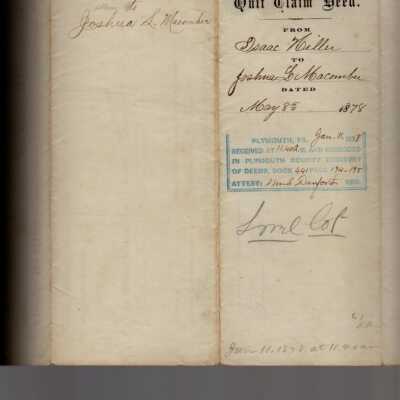 to
Joshua L. Macomber
Quit Claim Deed.
FROM
Isaac Hiller
TO
Joshua L Macomber
DATED
May 8th 1878
PLYMOUTH, SS. Jan. 11, 1878
RECEIVED AT AND RECORDED
IN PLYMOUTH COUNTY REGISTRY
OF DEEDS, BOOK 441 PAGE 194-195
ATTEST: Danforth REG.
Lot
Jan 11. 1878 at 11.40 am